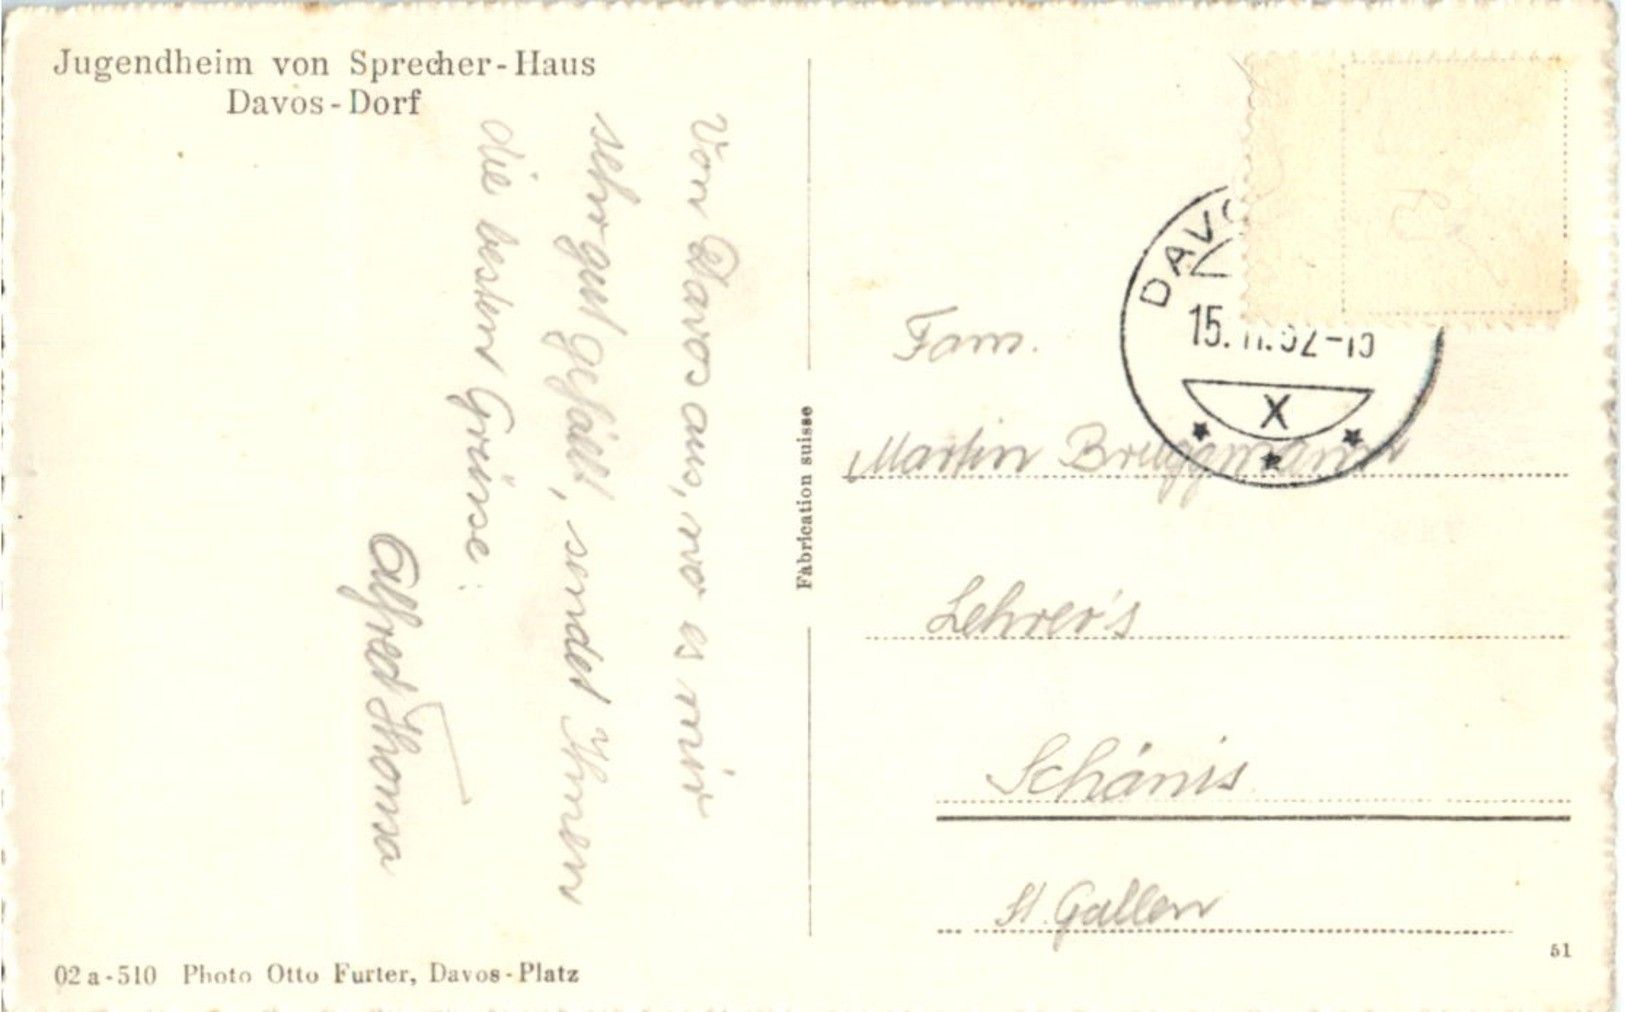 Jugendheim von Sprecher-Haus
Davos-Dorf
Von Davos aus, wo es mir
sehr gut gefällt, sendet Ihnen
die besten Grüsse:
Alfred Thoma
Fabrication suisse
DAVO
15. 52-
X
Fam.
Martin Bruggmann
Lehrer's
Schänis
St. Gallen
51
02 a-510 Photo Otto Furter, Davos-Platz